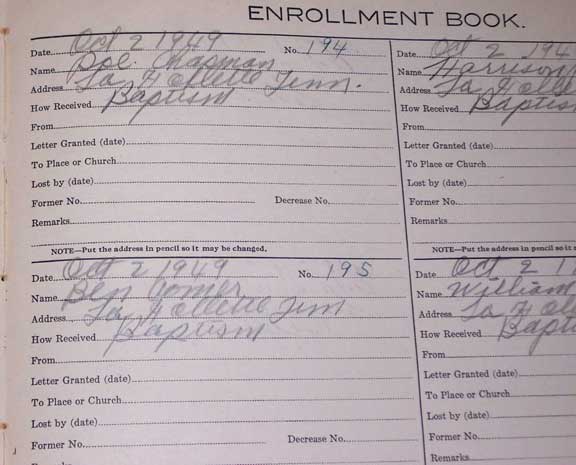 ENROLLMENT BOOK.
Date Oct 2 1949 No. 194
Name Doe Chapman
Address La Follette Tenn.
How Received Baptism
From
Letter Granted (date)
To Place or Church
Lost by (date)
Former No. Decrease No.
Remarks
NOTE—Put the address in pencil so it may be changed.
Date Oct 2 1949 No. 195
Name Ben Comer
Address La Follette Tenn
How Received Baptism
From
Letter Granted (date)
To Place or Church
Lost by (date)
Former No. Decrease No.
Remarks
Date Oct 2 194
Name Harrison
Address La Folle
How Received Baptism
From
Letter Granted (date)
To Place or Church
Lost by (date)
Former No.
Remarks
NOTE—Put the address in pencil so it
Date Oct 2 1
Name William
Address La Foll
How Received Bapt
From
Letter Granted (date)
To Place or Church
Lost by (date)
Former No.